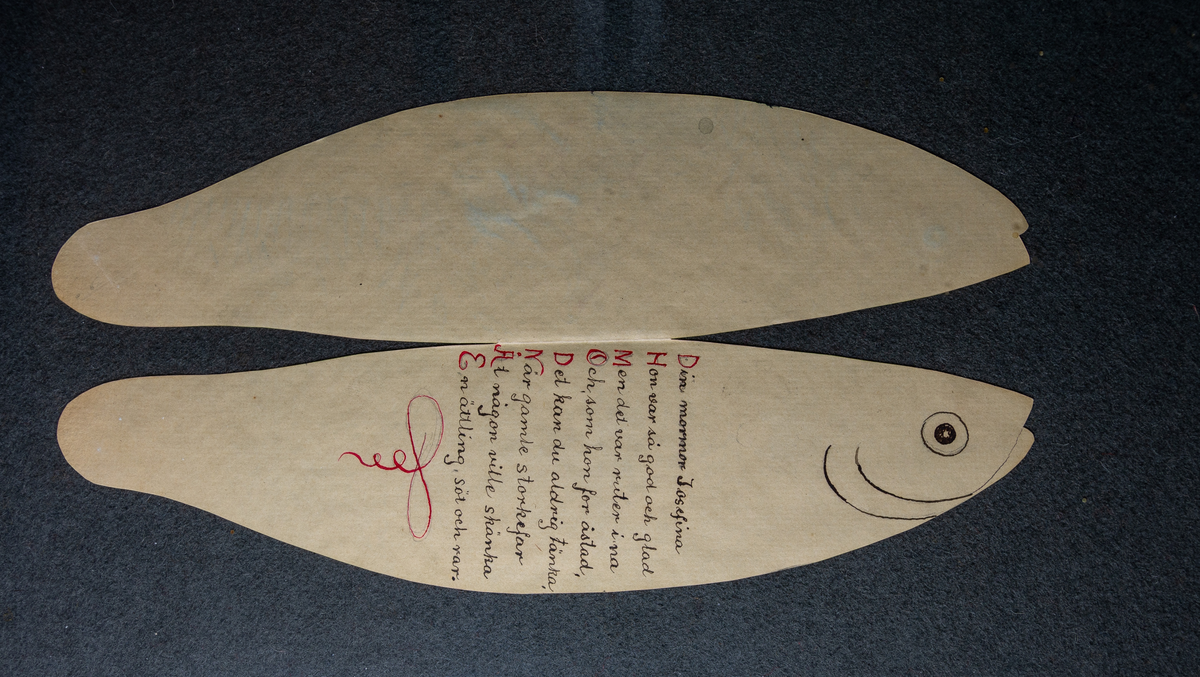 Din mormor Josefina
Hon var så god och glad
Men det var ruter i na
Och, som hon for åstad,
Det kan du aldrig tänka,
När gamle storkefar
Åt någon ville skänka
En ättling, söt och rar.